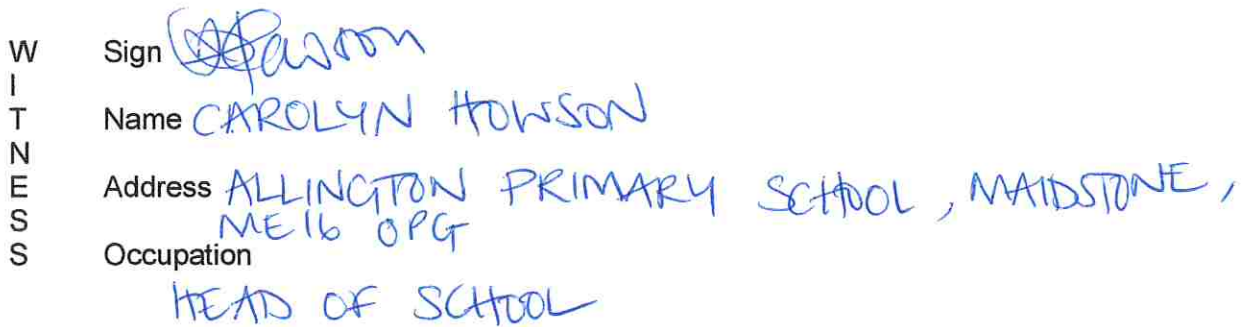 WITNESS
Sign
Name CAROLYN HOWSON
Address ALLINGTON PRIMARY SCHOOL, MAIDSTONE,
ME16 0PG
Occupation
HEAD OF SCHOOL